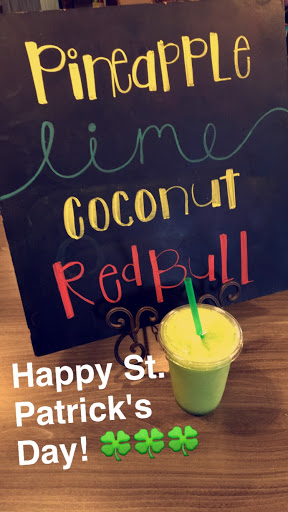 Pineapple
lime
coconut
Red Bull
Happy St.
Patrick's
Day! 🍀🍀🍀